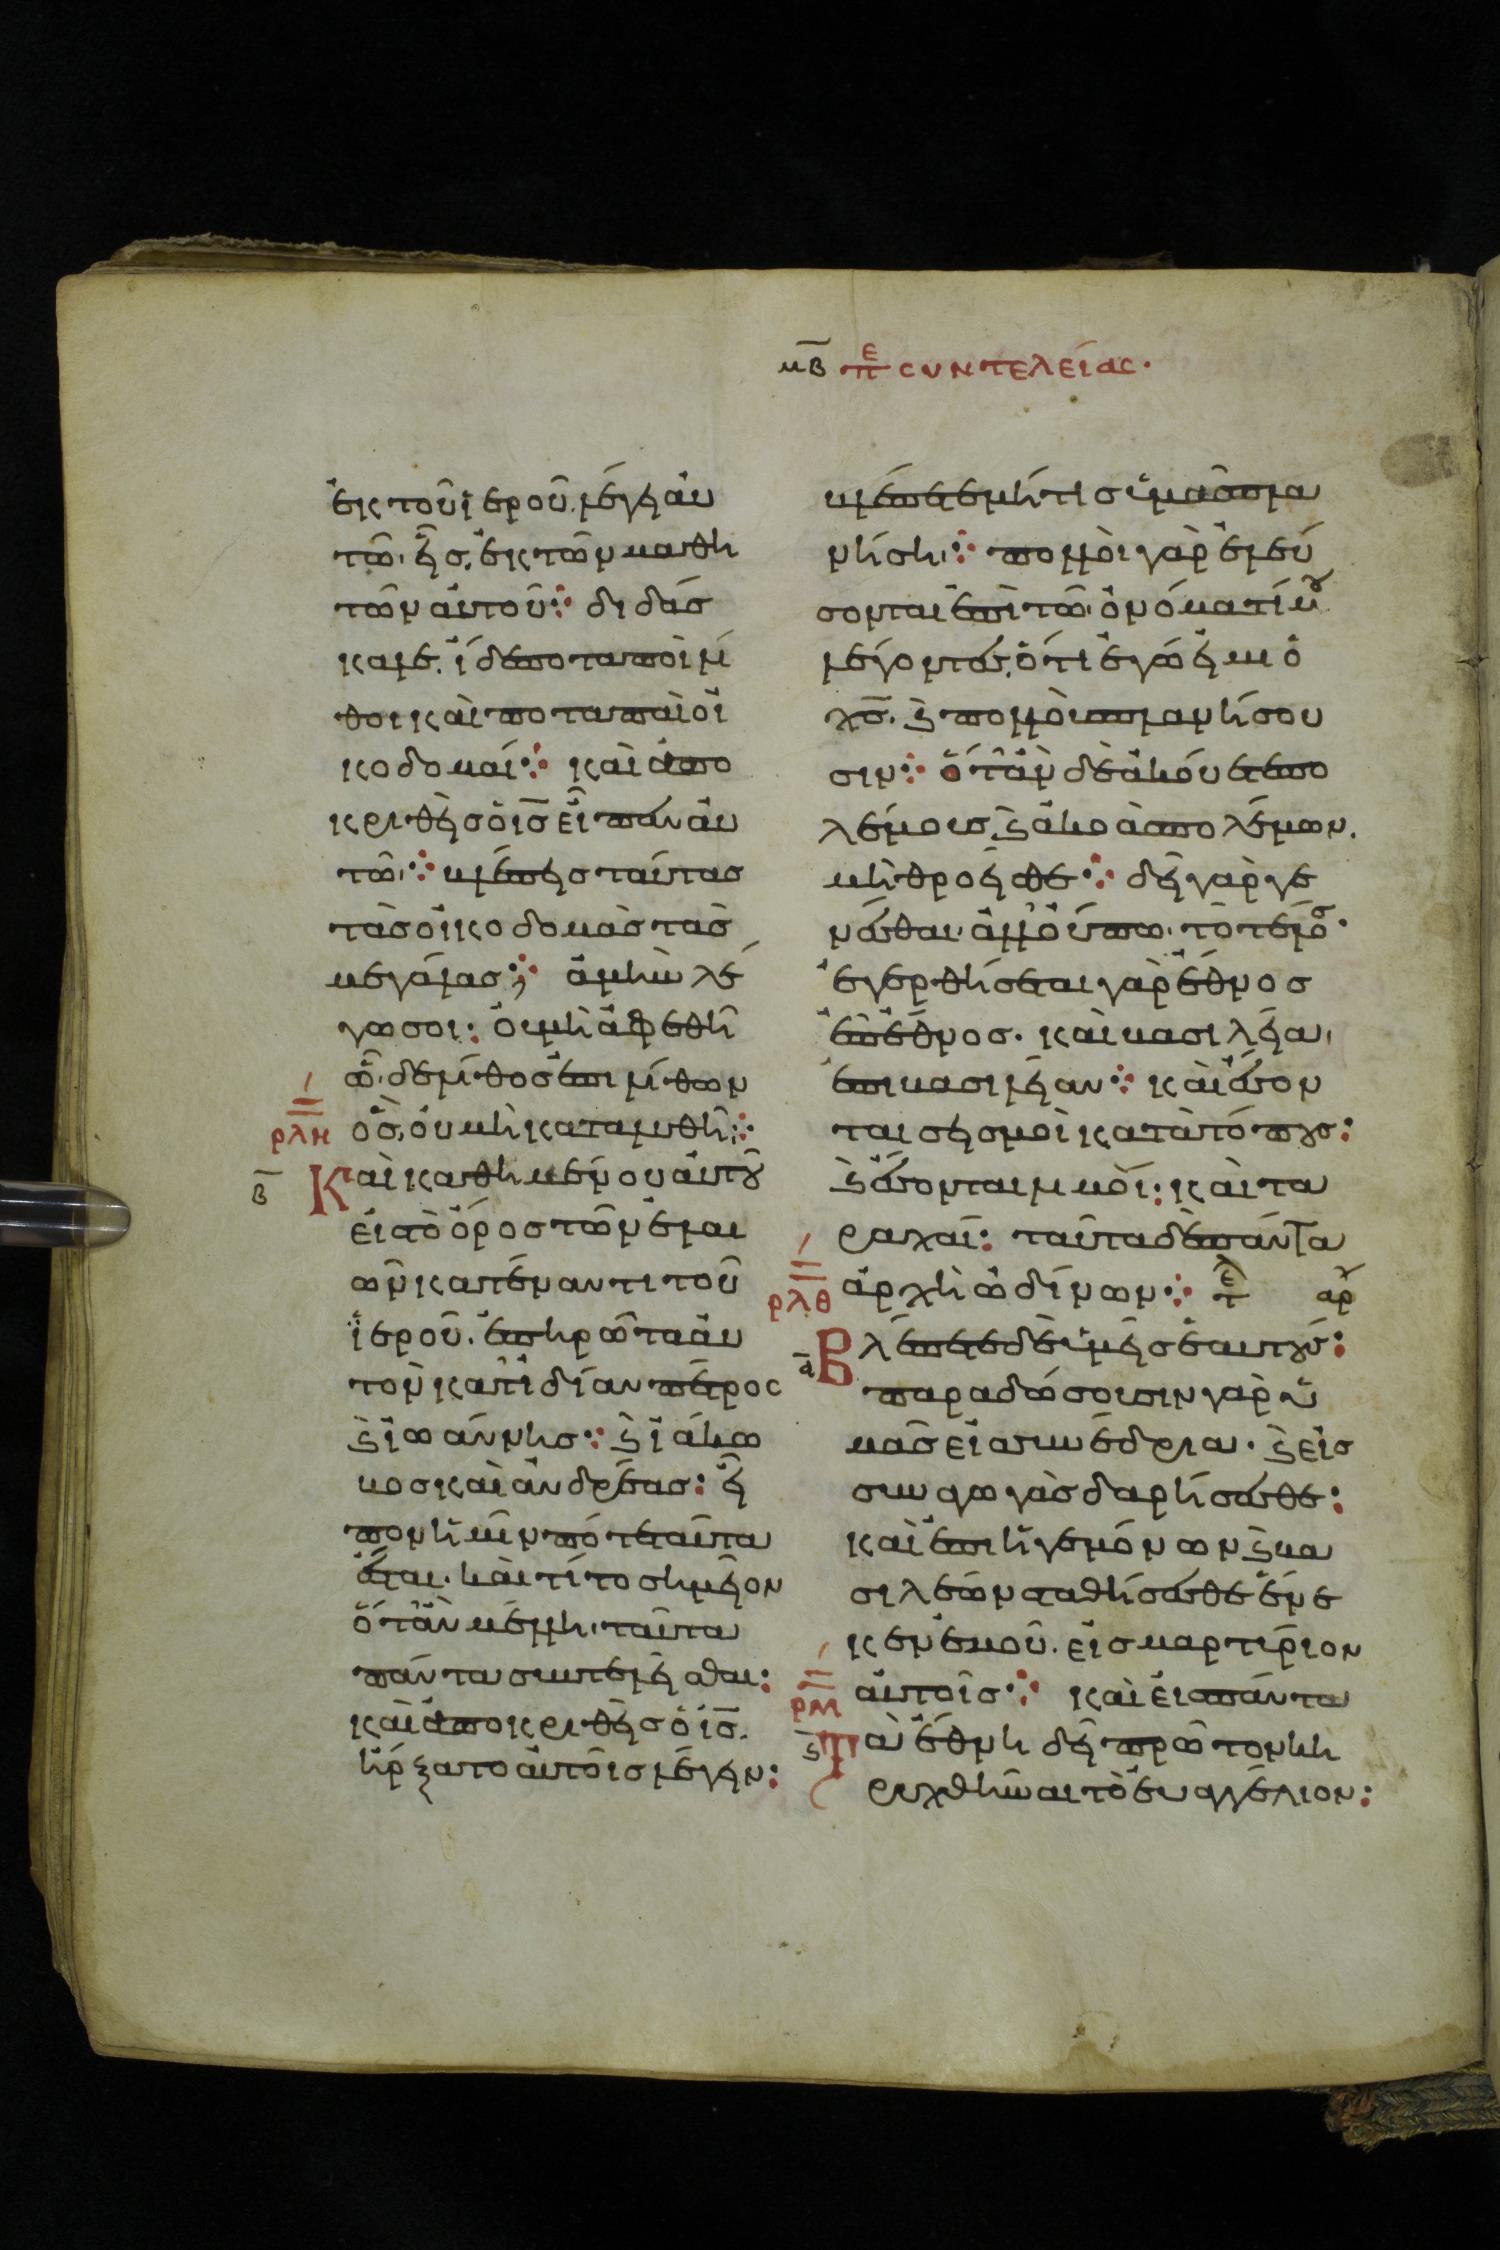 μβ πε συντελείας·
ἐκ τοῦ ἱεροῦ. λέγει αὐ
τῶ· εἷς ἐκ τῶν μαθη
τῶν αὐτοῦ· διδάσ
καλε. ἴδε ποταποὶ λί
θοι καὶ ποταπαὶ οἰ
κοδομαί· καὶ ἀπο
κριθεὶς ὁ ις εἶπεν αὐ
τῶ· βλέπεις ταύτας
τὰς οἰκοδομὰς τὰς
μεγάλας; ἀμὴν λέ
γω σοι: οὐ μὴ ἀφεθῆ
ὧδε λίθος ἐπι λίθων
ὃς, οὐ μὴ καταλυθῆ:
ρλη
β Καὶ καθημένου αὐτοῦ
εἰς τὸ ὄρος τῶν ἐλαι
ῶν κατέναντι τοῦ
ἱεροῦ. ἐπηρώτα αὐ
τὸν κατ' ἰδίαν πέτρος
ϗ ἰωάννης· ϗ ἰάκω
βος καὶ ἀνδρέας: εἰ
πον ἡμῖν πότε ταῦτα
ἔσται. καὶ τί το σημεῖον
ὅτἂν μέλλη ταῦτα
πάντα συντελεῖσθαι:
καὶ ἀποκριθεὶς ὁ ις.
ἤρξατο αὐτοῖς λέγειν:
βλέπετε μή τις ὑμᾶς πλα
νήση· πολλοὶ γὰρ ἐλεύ
σονται ἐπὶ τῶ ὀνόματί μου
λέγοντες, ὅτι ἐγώ εἰμι ὁ
χς. ϗ πολλοὺς πλανήσου
σιν· ὅτἂν δὲ ἀκούσητε πο
λέμους, ϗ ἀκοὰς πολέμων.
μὴ θροεῖσθε· δεῖ γὰρ γε
νέσθαι. ἀλλ' οὔπω τὸ τέλος·
ἐγερθήσεται γὰρ ἔθνος
ἐπ' ἔθνος. καὶ βασιλεία
ἐπι βασιλείαν· καὶ ἔσον
ται σεισμοὶ κατὰ τόπους:
ϗ ἔσονται λιμοί: καὶ τα
ραχαί: ταῦτα δὲ πάντα
ρλθ
ἀρχὴ ὠδίνων· τε αρχου
α Βλέπετε δὲ ὑμεῖς ἑαυτούς:
παραδώσουσιν γὰρ ὑ
μᾶς εἰς συνέδρια. ϗ εἰς
συναγωγὰς δαρήσεσθε:
καὶ ἐπι ἡγεμόνων ϗ βα
σιλέων σταθήσεσθε ἕνε
κεν ἐμοῦ. εἰς μαρτύριον
ρμ
αὐτοῖς· καὶ εἰς πάντα
ϛ Τὰ ἔθνη δεῖ πρῶτον κη
ρυχθῆναι τὸ εὐαγγέλιον: